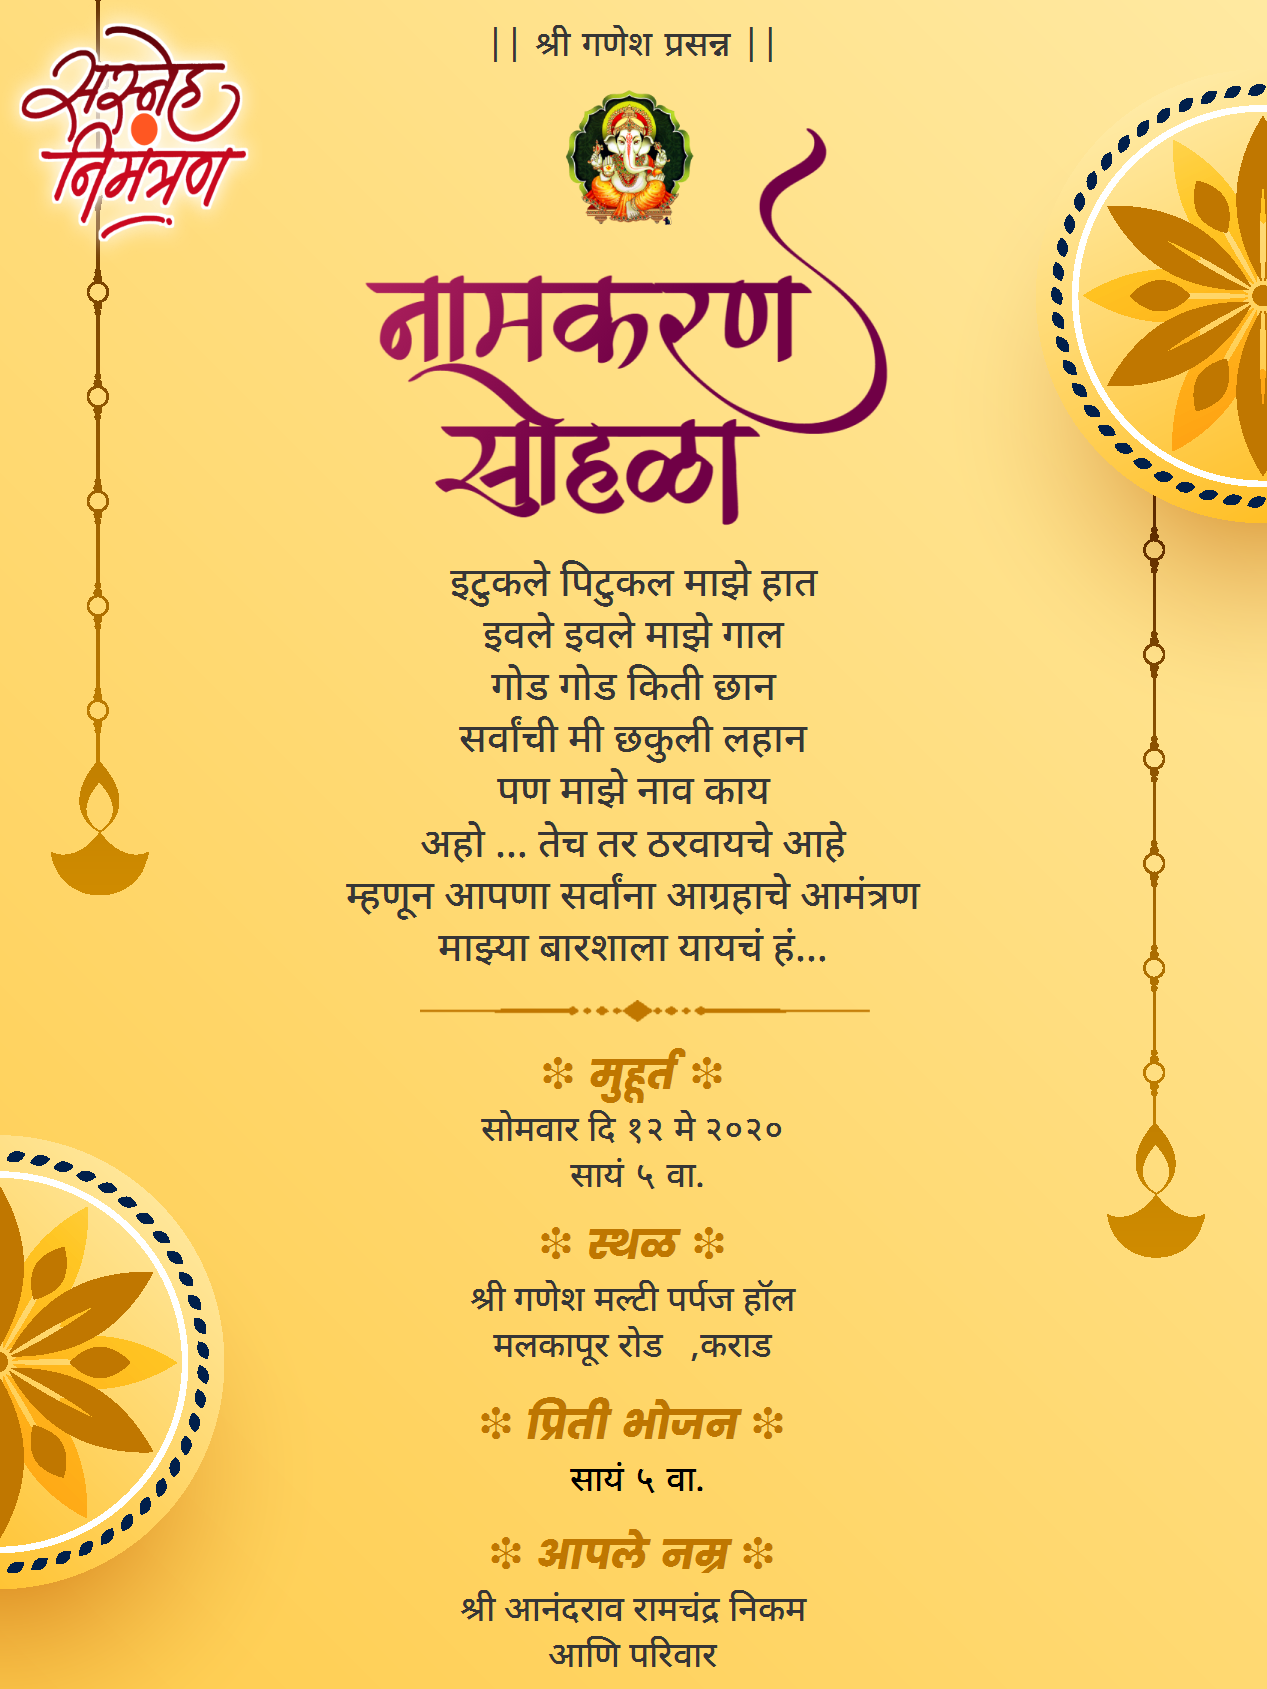 सस्नेह
निमंत्रण
|| श्री गणेश प्रसन्न ||
नामकरण
सोहळा
इटुकले पिटुकल माझे हात
इवले इवले माझे गाल
गोड गोड किती छान
सर्वांची मी छकुली लहान
पण माझे नाव काय
अहो ... तेच तर ठरवायचे आहे
म्हणून आपणा सर्वांना आग्रहाचे आमंत्रण
माझ्या बारशाला यायचं हं...
❇ मुहूर्त ❇
सोमवार दि १२ मे २०२०
सायं ५ वा.
❇ स्थळ ❇
श्री गणेश मल्टी पर्पज हॉल
मलकापूर रोड ,कराड
❇ प्रिती भोजन ❇
सायं ५ वा.
❇ आपले नम्र ❇
श्री आनंदराव रामचंद्र निकम
आणि परिवार